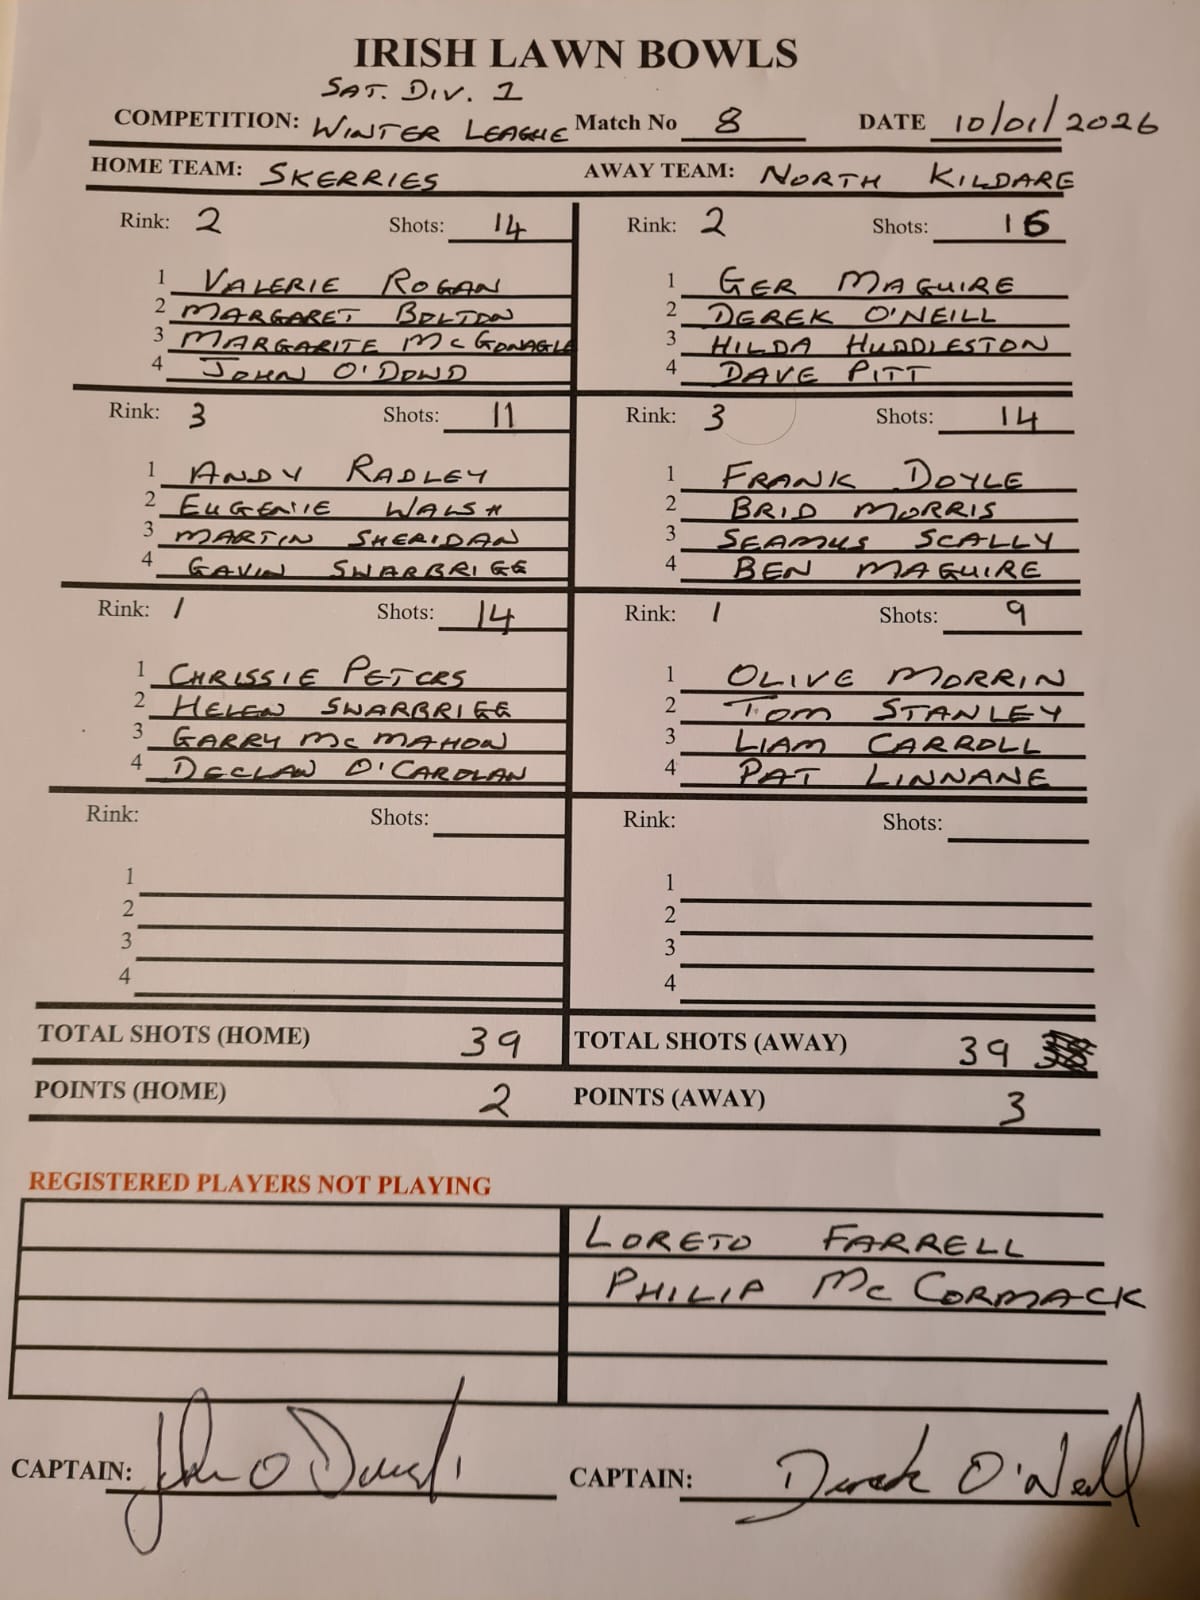 IRISH LAWN BOWLS
SAT. DIV. 1
COMPETITION: WINTER LEAGUE Match No 8 DATE 10/01/2026
HOME TEAM: SKERRIES AWAY TEAM: NORTH KILDARE
Rink: 2 Shots: 14 Rink: 2 Shots: 16
1 VALERIE ROGAN 1 GER MAGUIRE
2 MARGARET BOLTON 2 DEREK O'NEILL
3 MARGARITE McGONAGLE 3 HILDA HUDDLESTON
4 JOHN O'DOWD 4 DAVE PITT
Rink: 3 Shots: 11 Rink: 3 Shots: 14
1 ANDY RADLEY 1 FRANK DOYLE
2 EUGENIE WALSH 2 BRID MORRIS
3 MARTIN SHERIDAN 3 SEAMUS SCALLY
4 GAVIN SWARBRIGG 4 BEN MAGUIRE
Rink: 1 Shots: 14 Rink: 1 Shots: 9
1 CHRISSIE PETERS 1 OLIVE MORRIN
2 HELEN SWARBRIGG 2 TOM STANLEY
3 GARRY McMAHON 3 LIAM CARROLL
4 DECLAN O'CAROLAN 4 PAT LINNANE
Rink: Shots: Rink: Shots:
1 1
2 2
3 3
4 4
TOTAL SHOTS (HOME) 39 TOTAL SHOTS (AWAY) 39
POINTS (HOME) 2 POINTS (AWAY) 3
REGISTERED PLAYERS NOT PLAYING
LORETO FARRELL
PHILIP McCORMACK
CAPTAIN: John O'Dowd CAPTAIN: Derek O'Neill